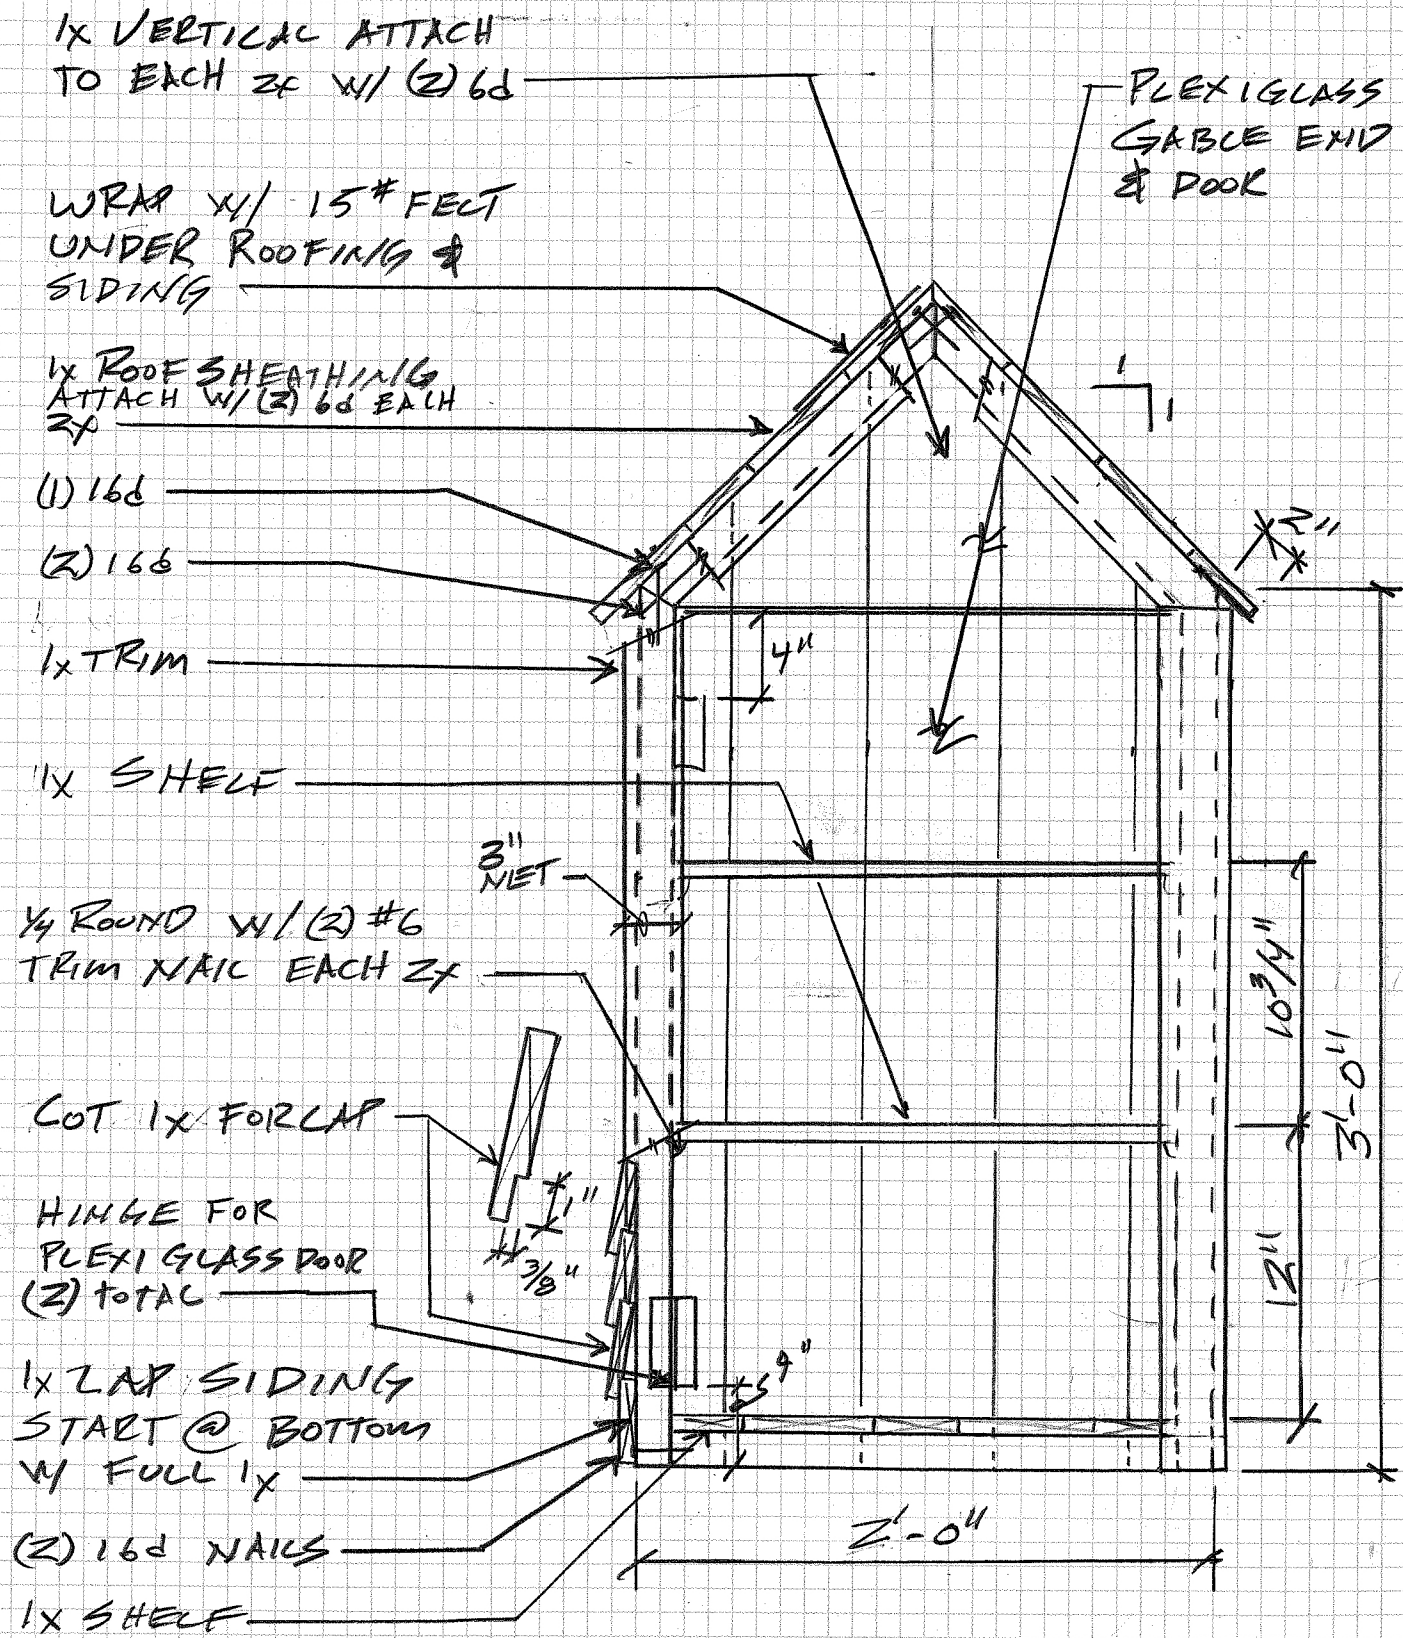 1x VERTICAL ATTACH
TO EACH 2x W/ (2) 6d
PLEXIGLASS
GABLE END
& DOOR
WRAP W/ 15# FELT
UNDER ROOFING &
SIDING
1x ROOF SHEATHING
ATTACH W/ (2) 6d EACH
2x
1
1
(1) 16d
2"
(2) 16d
1x TRIM
4"
1x SHELF
3"
NET
1/4 ROUND W/ (2) #6
TRIM NAIL EACH 2x
10 3/4"
3'-0"
CUT 1x FOR CAP
1"
3/8"
HINGE FOR
PLEXIGLASS DOOR
(2) TOTAL
12"
4"
1x LAP SIDING
START @ BOTTOM
W/ FULL 1x
(2) 16d NAILS
2'-0"
1x SHELF